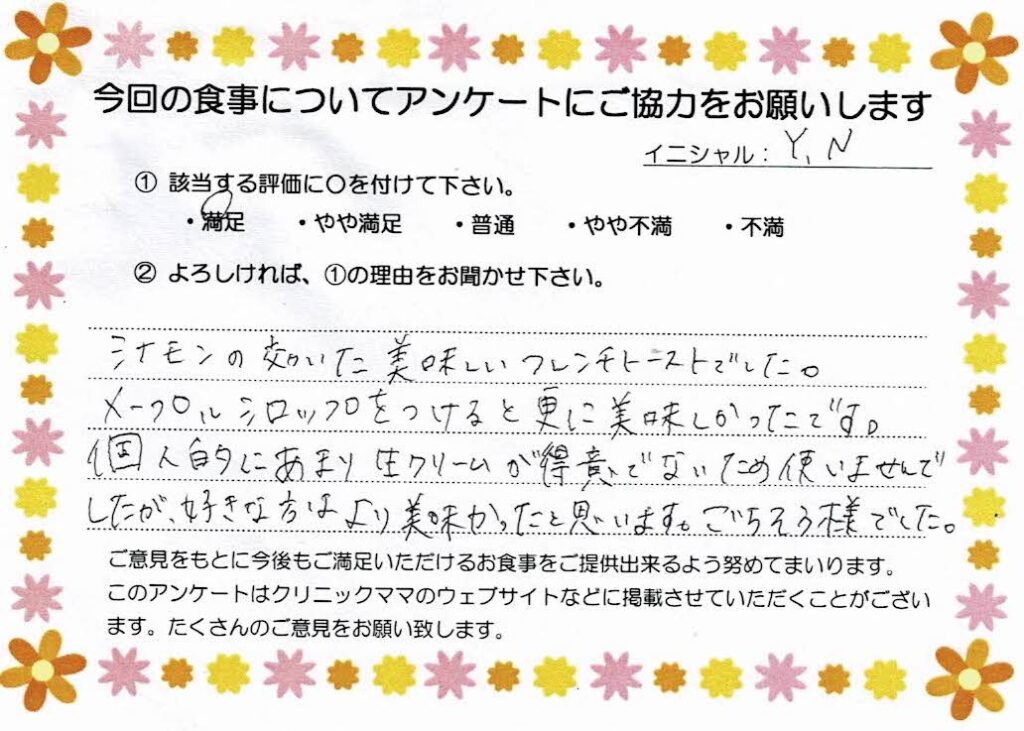 今回の食事についてアンケートにご協力をお願いします
イニシャル： Y, N
① 該当する評価に〇を付けて下さい。
・満足　・やや満足　・普通　・やや不満　・不満
② よろしければ、①の理由をお聞かせ下さい。
シナモンの効いた美味しいフレンチトーストでした。
メープルシロップをつけると更に美味しかったです。
個人的にあまり生クリームが得意でないため使いませんで
したが、好きな方はより美味かったと思います。ごちそう様でした。
ご意見をもとに今後もご満足いただけるお食事をご提供出来るよう努めてまいります。
このアンケートはクリニックママのウェブサイトなどに掲載させていただくことがござい
ます。たくさんのご意見をお願い致します。